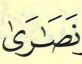 نَصَٰرَىٰ